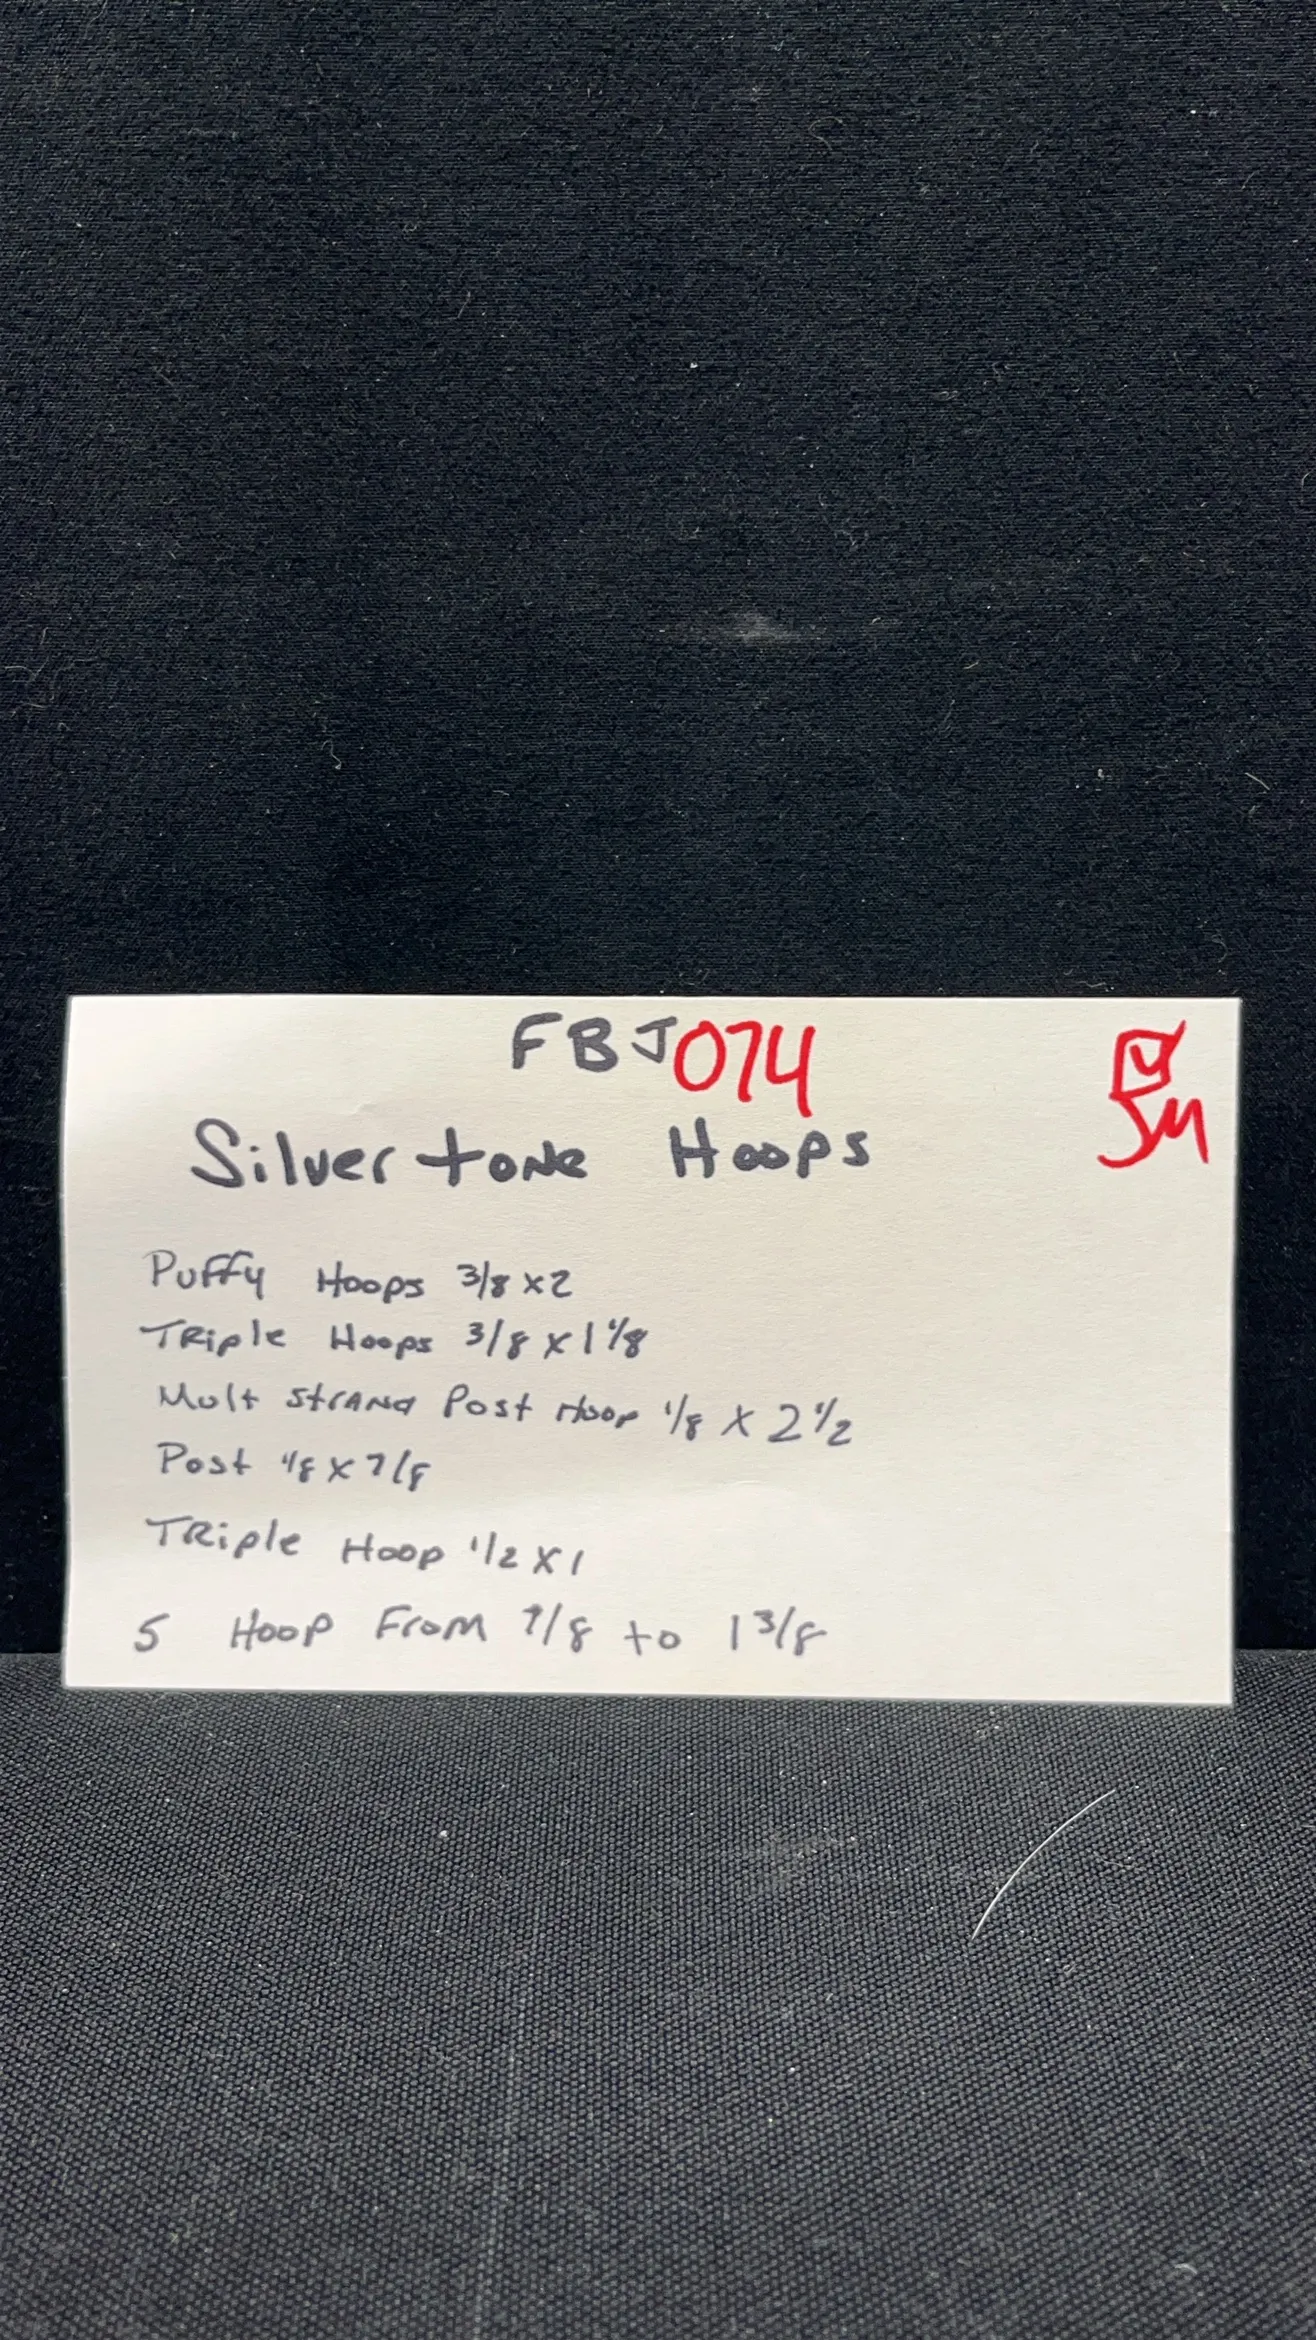 FBJ074
Silvertone Hoops
Puffy Hoops 3/8 x 2
Triple Hoops 3/8 x 1 1/8
Mult Strand Post Hoop 1/8 X 2 1/2
Post 1/8 X 7/8
Triple Hoop 1/2 X 1
5 Hoop From 7/8 to 1 3/8